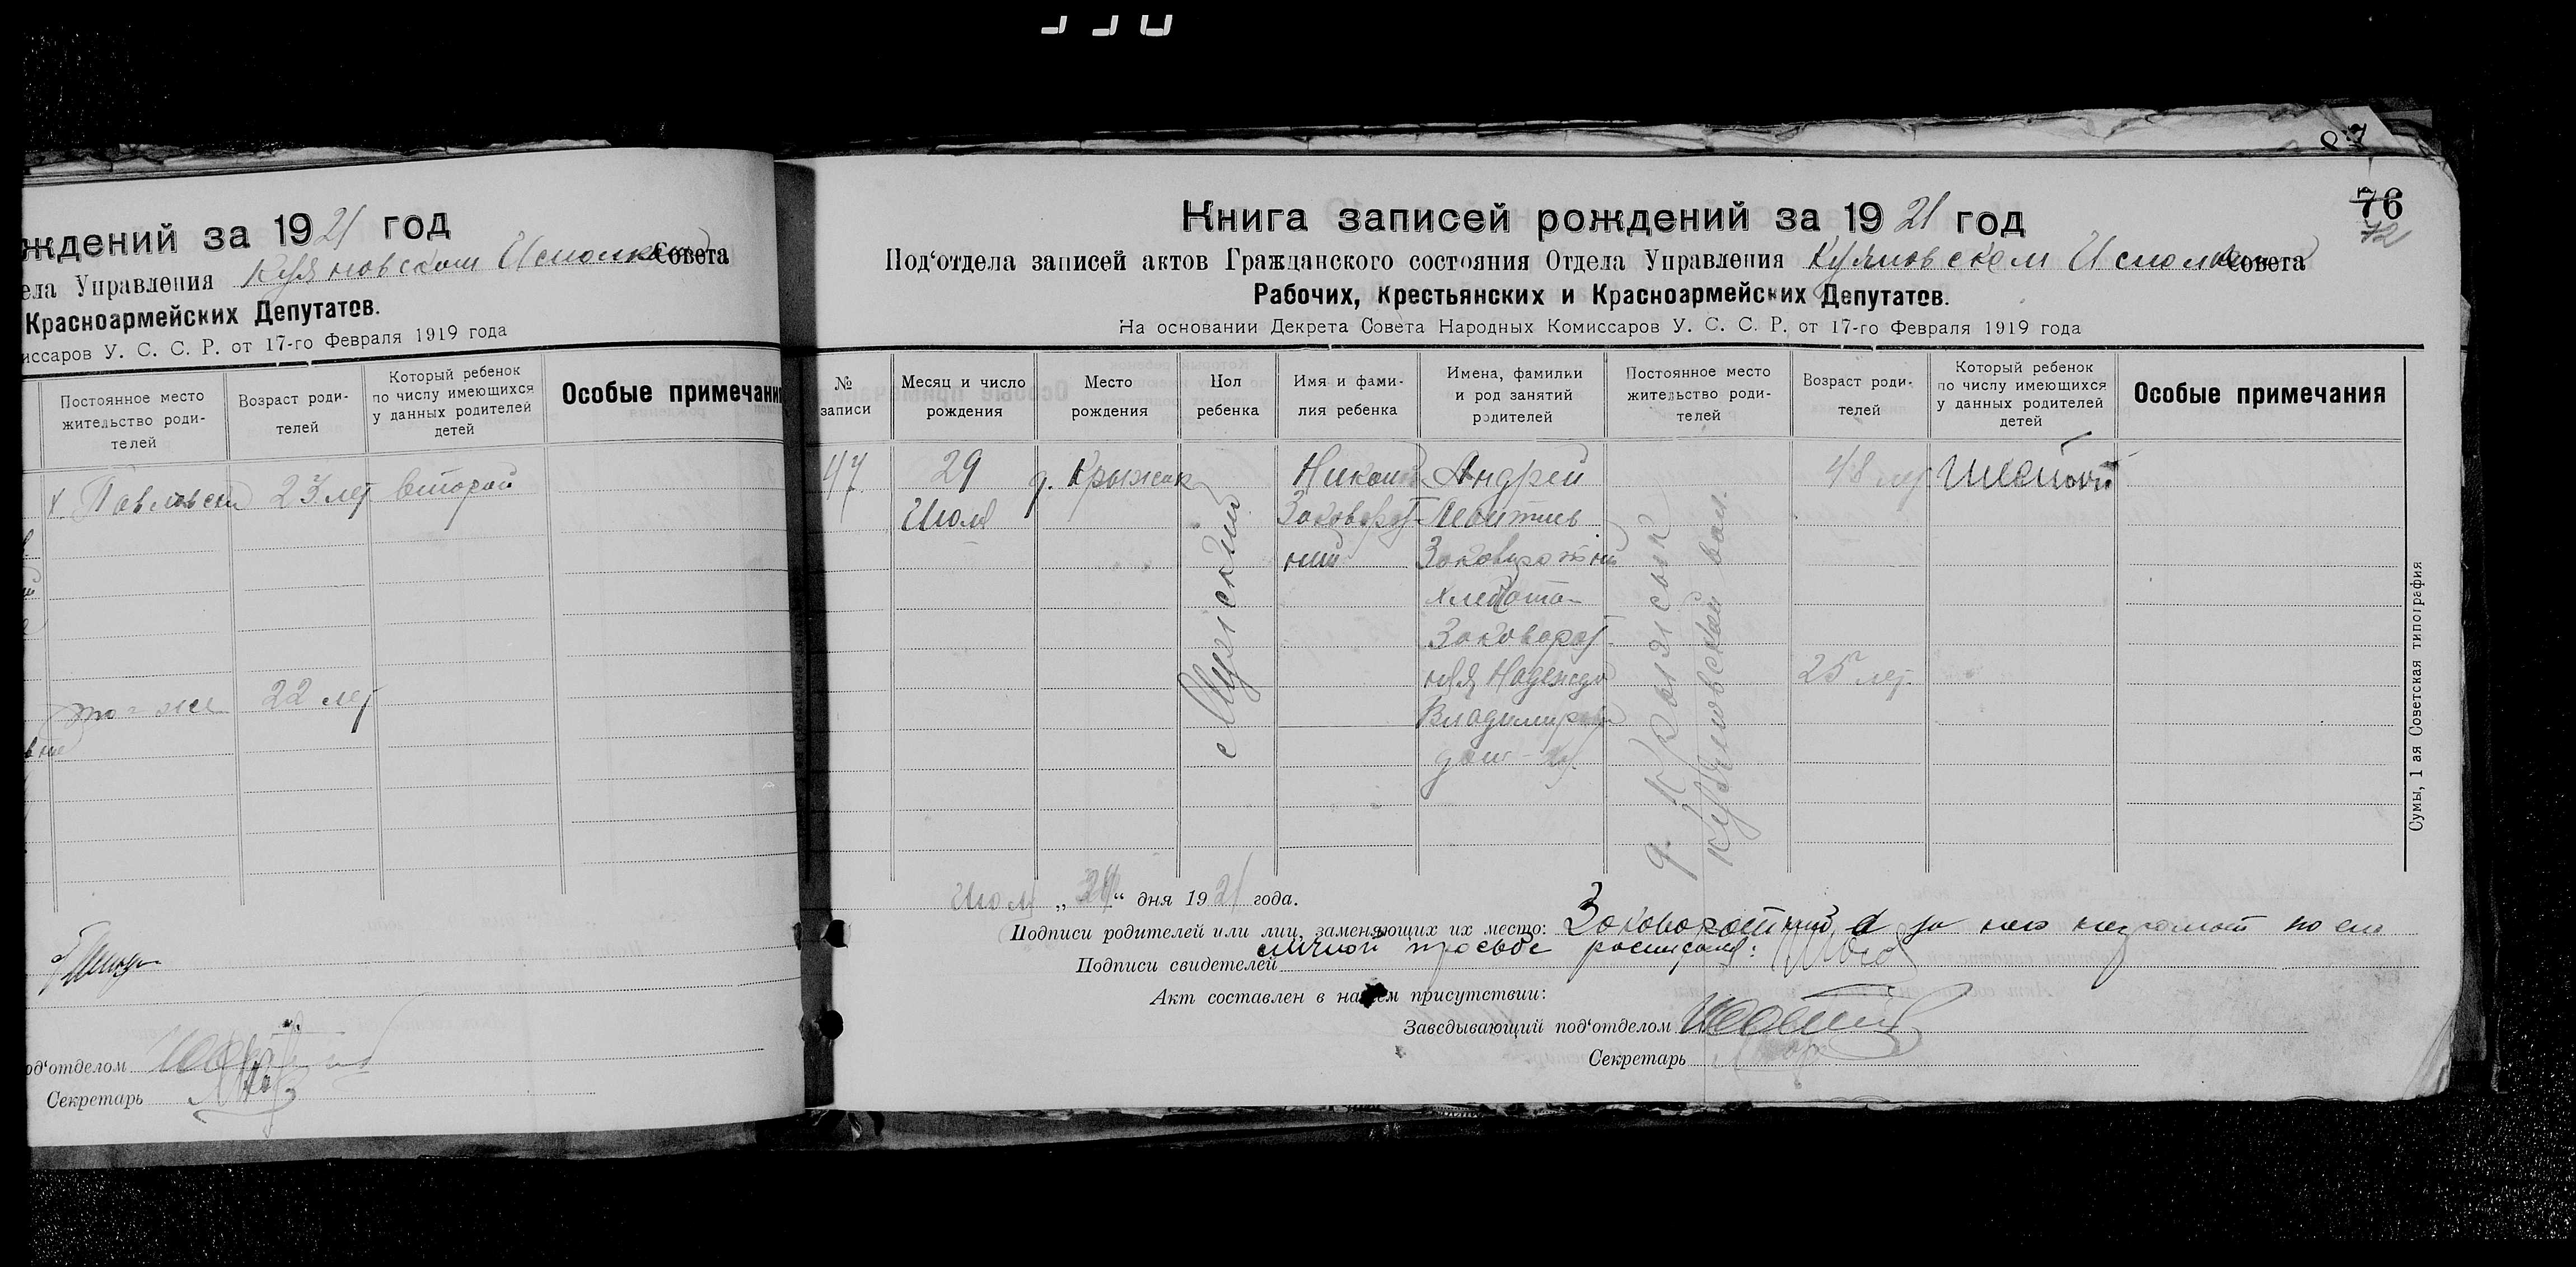 ждений за 1921 год
ела Управления Куяновском Исполком Совета
Красноармейских Депутатов.
иссаров У. С. С. Р. от 17-го Февраля 1919 года
Постоянное место жительство родителей
Возраст родителей
Который ребенок по числу имеющихся у данных родителей детей
Особые примечания
х. Павловски 23 лет второй
то-же 22 лет
од‘отделом
Секретарь
87
76
72
Книга записей рождений за 1921 год
Под‘отдела записей актов Гражданского состояния Отдела Управления Куяновском Исполком Совета
Рабочих, Крестьянских и Красноармейских Депутатов.
На основании Декрета Совета Народных Комиссаров У. С. С. Р. от 17-го Февраля 1919 года
№ записи
Месяц и число рождения
Место рождения
Пол ребенка
Имя и фами-
лия ребенка
Имена, фамилии
и род занятий
родителей
Постоянное место
жительство роди-
телей
Возраст роди-
телей
Который ребенок
по числу имеющихся
у данных родителей
детей
Особые примечания
47
29
Июля
д. Крыжик
Мужский
Никон
Заковорот-
ний
Андрей
Леонтиев
Заковоротний
хлебопа-
Заковорот-
няя Надежда
Владимиров
дом-
д.
Куяновской вол.
48 лет
25 лет
шестой
Июля „29“ дня 1921 года.
Подписи родителей или лиц, заменяющих их место: Заковоротний а за него неграмот по его
личной просьбе расписался:
Подписи свидетелей
Акт составлен в нашем присутствии:
Заведывающий под‘отделом
Секретарь
Сумы, 1 ая Советская типография